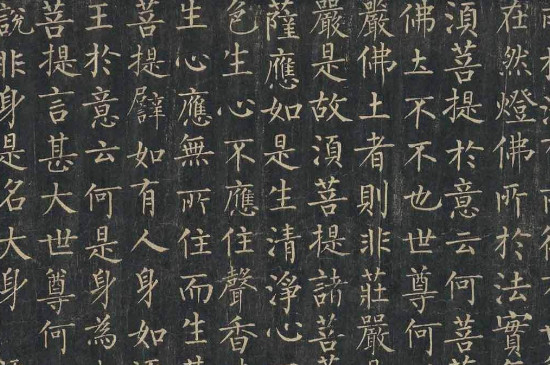 在然燈佛所於法實
須菩提於意云何菩
佛土不不也世尊何
嚴佛土者則非莊嚴
嚴是故須菩提諸菩
薩應如是生清淨心
色生心不應住聲香
生心應無所住而生
菩提譬如有人身如
王於意云何是身為
菩提言甚大世尊何
說非身是名大身